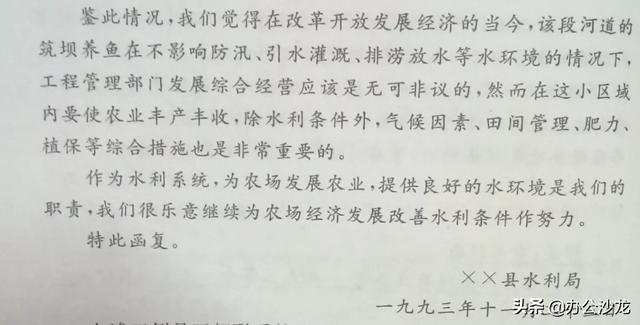 鉴此情况,我们觉得在改革开放发展经济的当今,该段河道的
筑坝养鱼在不影响防汛、引水灌溉、排涝放水等水环境的情况下,
工程管理部门发展综合经营应该是无可非议的,然而在这小区域
内要使农业丰产丰收,除水利条件外,气候因素、田间管理、肥力、
植保等综合措施也是非常重要的。
作为水利系统,为农场发展农业,提供良好的水环境是我们的
职责,我们很乐意继续为农场经济发展改善水利条件作努力。
特此函复。
××县水利局
一九九三年十一
头条@办公沙龙